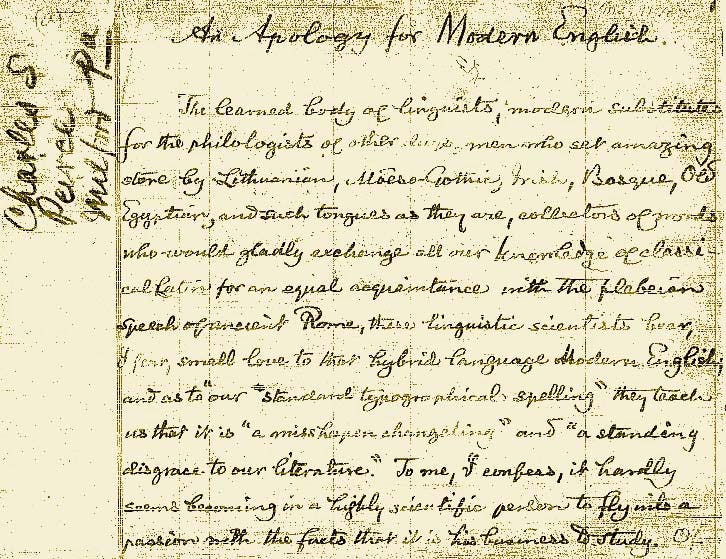 An Apology for Modern English
Charles S
Peirce
Milford Pa
The learned body of linguists, modern substitutes
for the philologists of other days, men who set amazing
store by Lithuanian, Moeso-Gothic, Irish, Basque, Old
Egyptian, and such tongues as they are, collectors of words
who would gladly exchange all our knowledge of classi-
cal Latin for an equal acquaintance with the plebeian
speech of ancient Rome, these linguistic scientists bear,
I fear, small love to that hybrid language Modern English;
and as to our "standard typographical spelling" they teach
us that it is "a misshapen changeling" and "a standing
disgrace to our literature." To me, I confess, it hardly
seems becoming in a highly scientific person to fly into a
passion with the facts that it is his business to study.